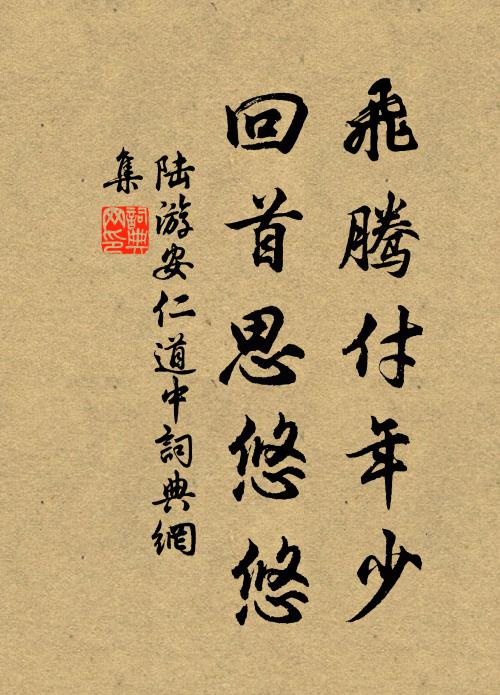 飛騰付年少
回首思悠悠
陸游安仁道中詞典網
集
詞典網印